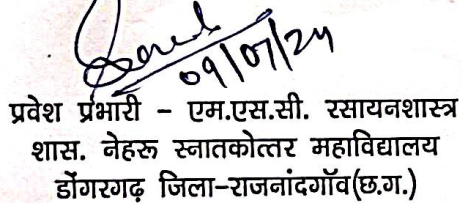 09/07/24
प्रवेश प्रभारी - एम.एस.सी. रसायनशास्त्र
शास. नेहरू स्नातकोत्तर महाविद्यालय
डोंगरगढ़ जिला-राजनांदगॉव(छ.ग.)